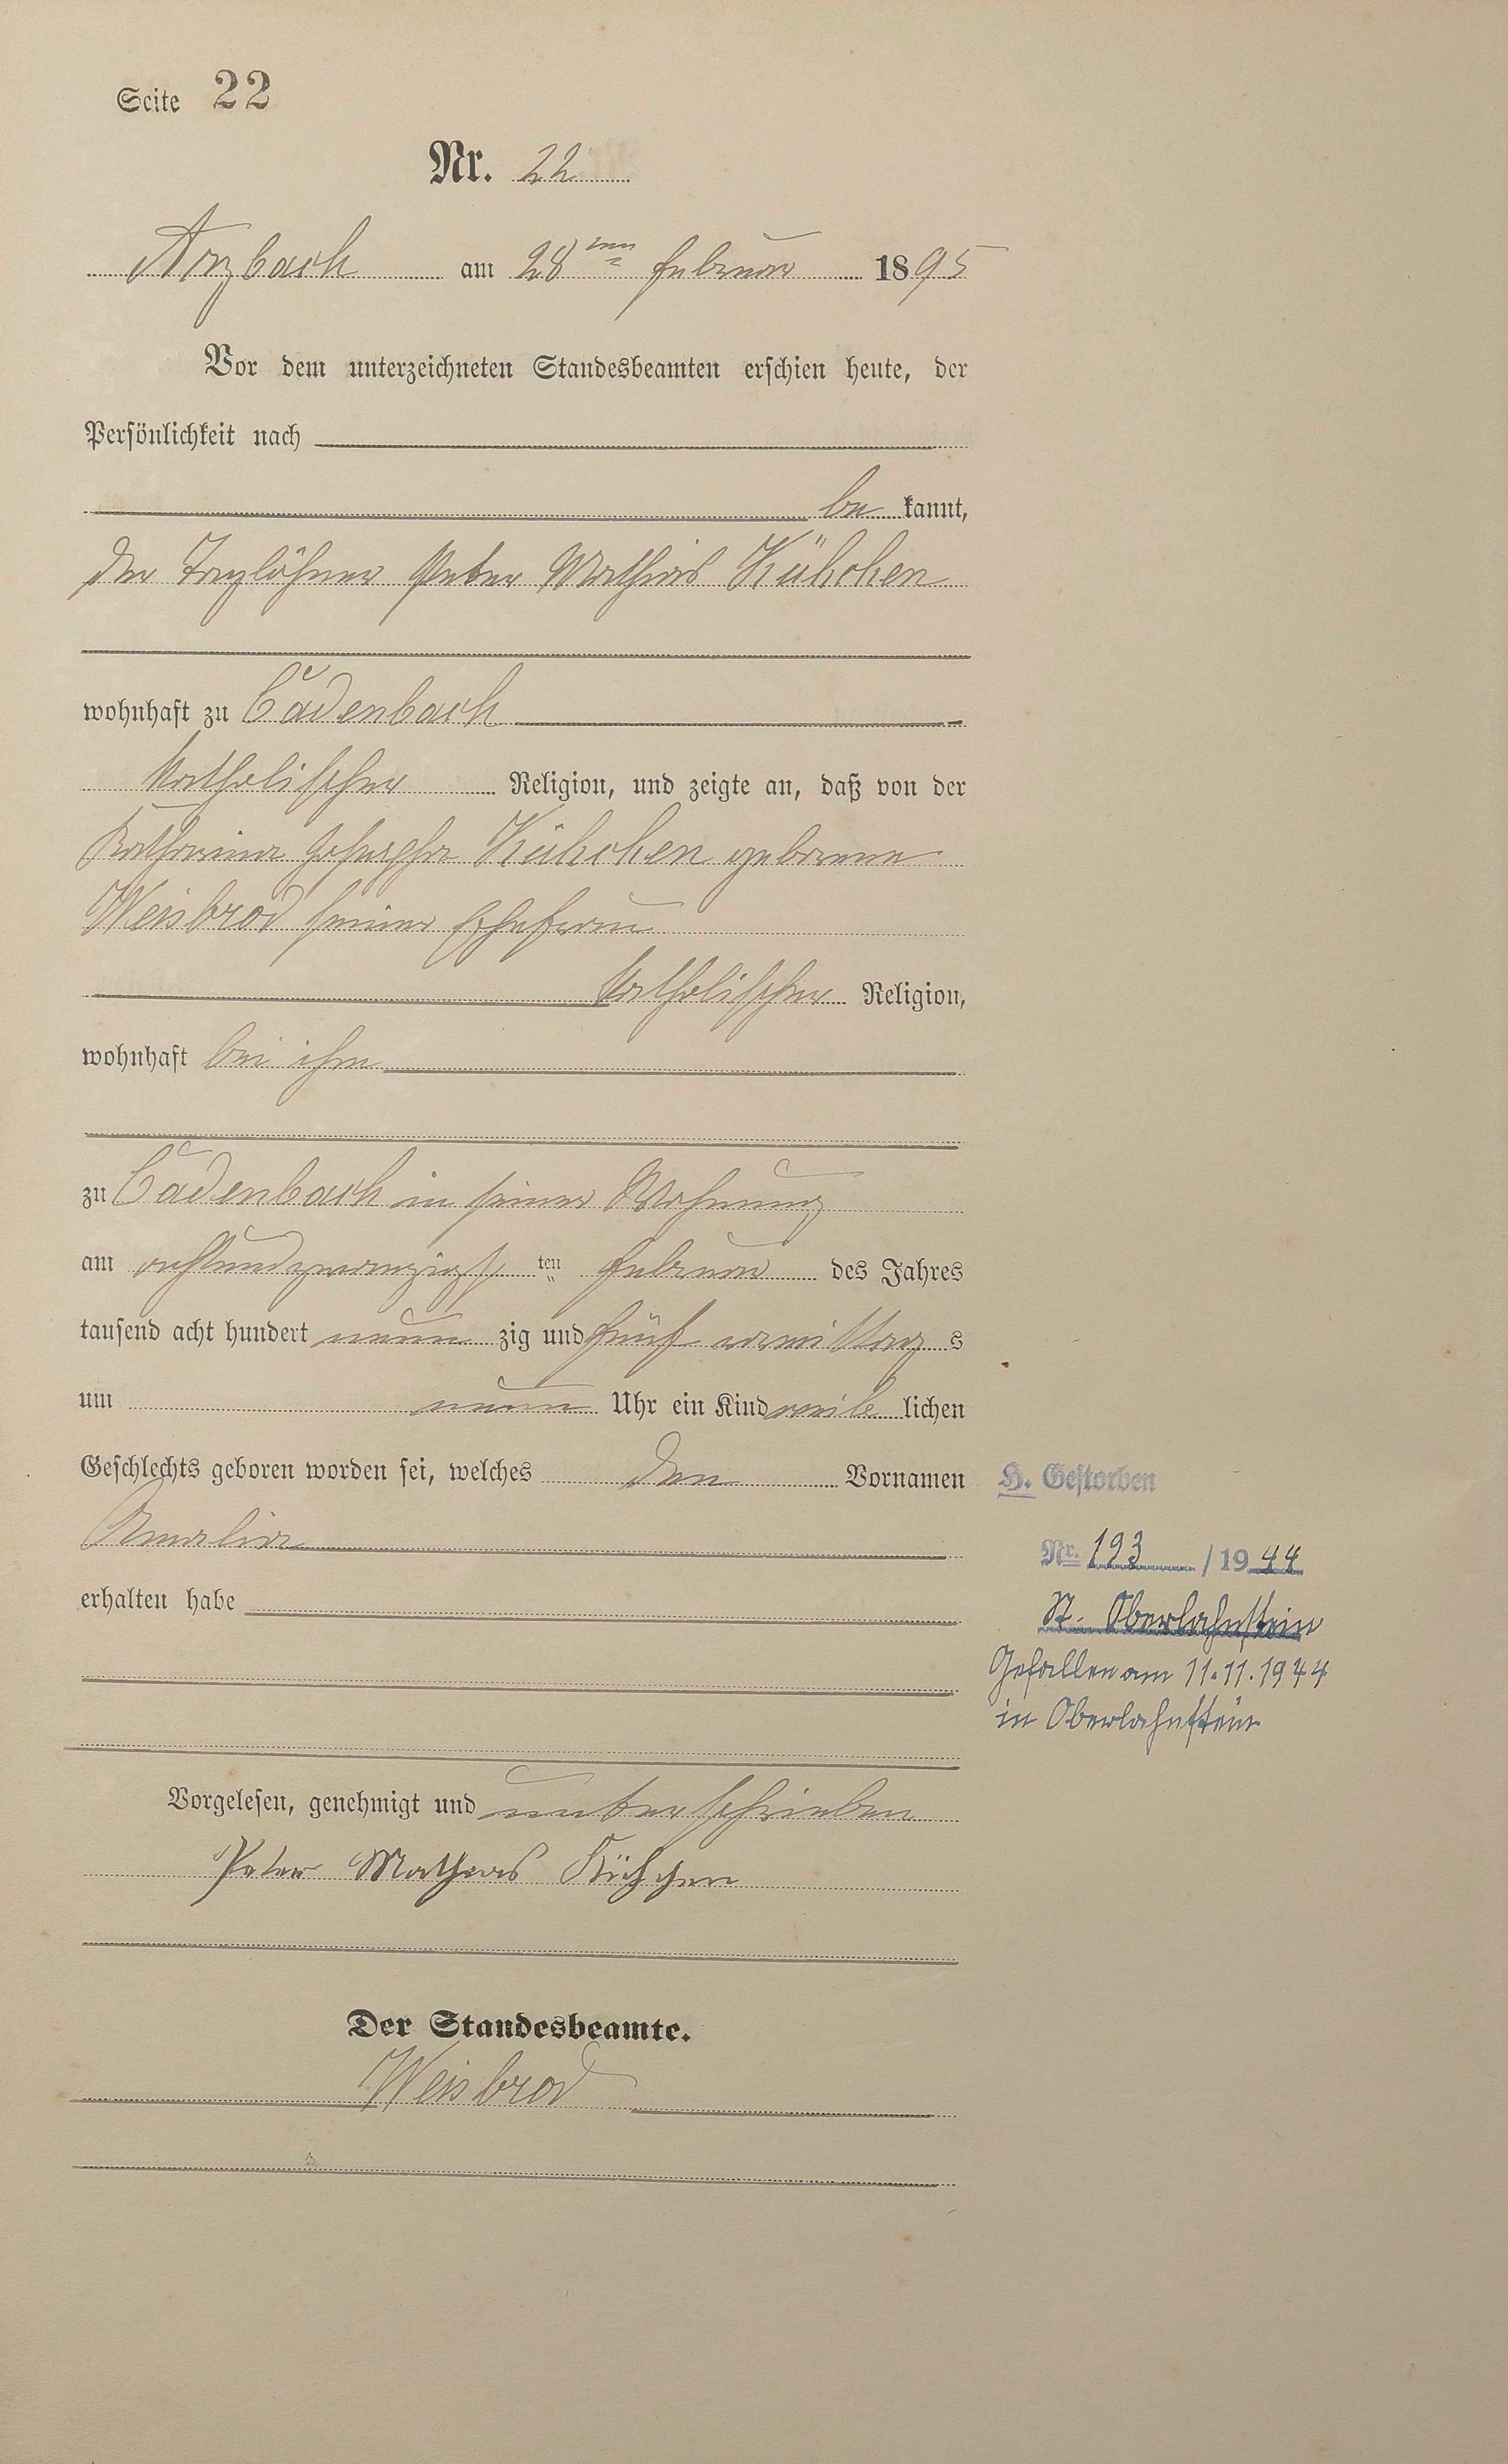 Seite 22
Nr. 22
Arzbach am 28ten Februar 1895
Vor dem unterzeichneten Standesbeamten erschien heute, der
Persönlichkeit nach
be kannt,
der Taglöhner Peter Mathias Kühchen
wohnhaft zu Cadenbach
katholischer Religion, und zeigte an, daß von der
Katharina Josepha Kühchen geborene
Weisbrod seiner Ehefrau
katholischer Religion,
wohnhaft bei ihm
zu Cadenbach in seiner Wohnung
am achtundzwanzigsten Februar des Jahres
tausend acht hundert neun zig und fünf vormittag s
um neun Uhr ein Kind weib lichen
Geschlechts geboren worden sei, welches den Vornamen
H. Gestorben
Amalia
Nr. 193 / 19 44
erhalten habe
St. Oberlahnstein
Gefallen am 11.11.1944
in Oberlahnstein
Vorgelesen, genehmigt und unterschrieben
Peter Mathias Kühchen
Der Standesbeamte.
Weisbrod